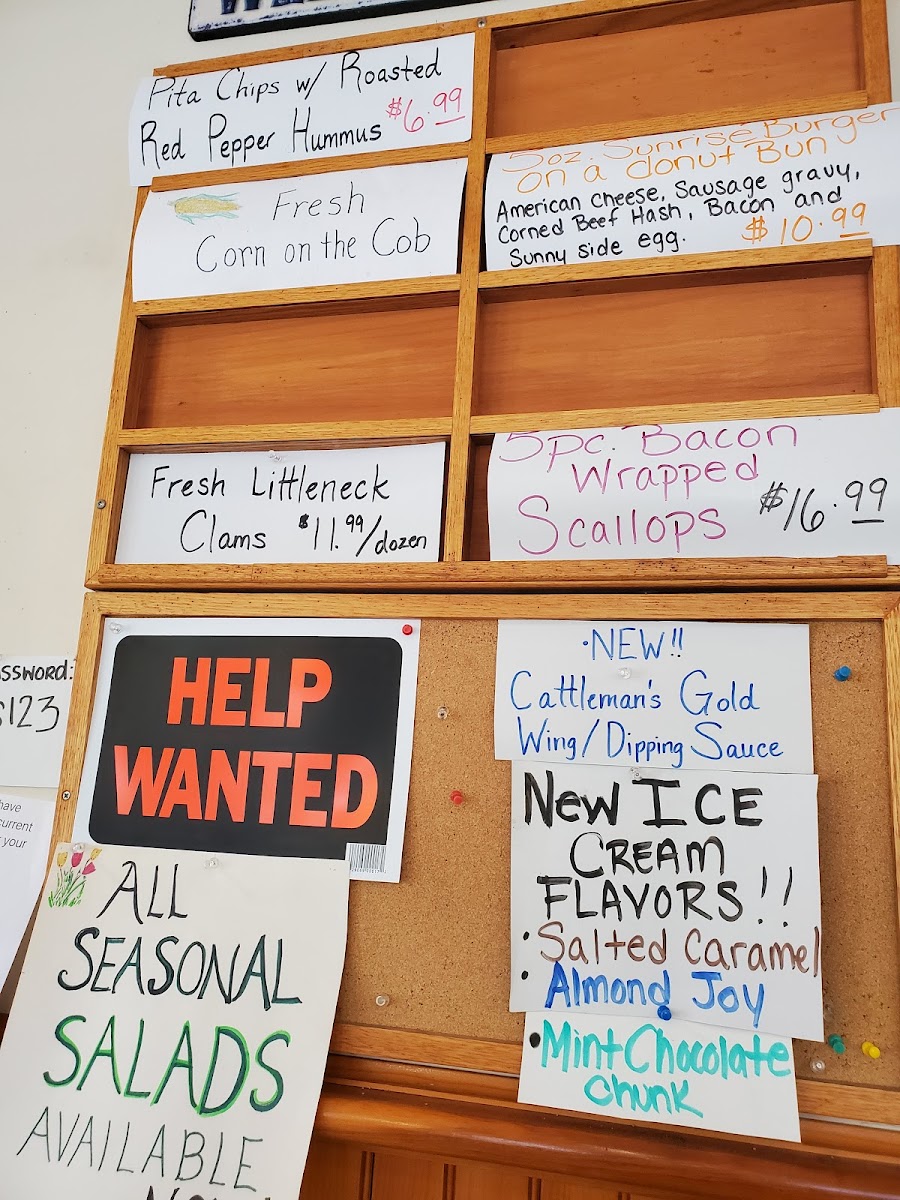 Pita Chips w/ Roasted
Red Pepper Hummus $6.99
Fresh
Corn on the Cob
5oz. Sunrise Burger
on a donut Bun
American cheese, Sausage gravy,
Corned Beef Hash, Bacon and
Sunny side egg. $10.99
Fresh Littleneck
Clams $11.99/dozen
5pc. Bacon
Wrapped
Scallops $16.99
HELP
WANTED
·NEW!!
Cattleman's Gold
Wing/Dipping Sauce
New ICE
CREAM
FLAVORS!!
• Salted Caramel
• Almond Joy
• Mint Chocolate
Chunk
ALL
SEASONAL
SALADS
AVAILABLE
SSWORD:
123
have
current
your